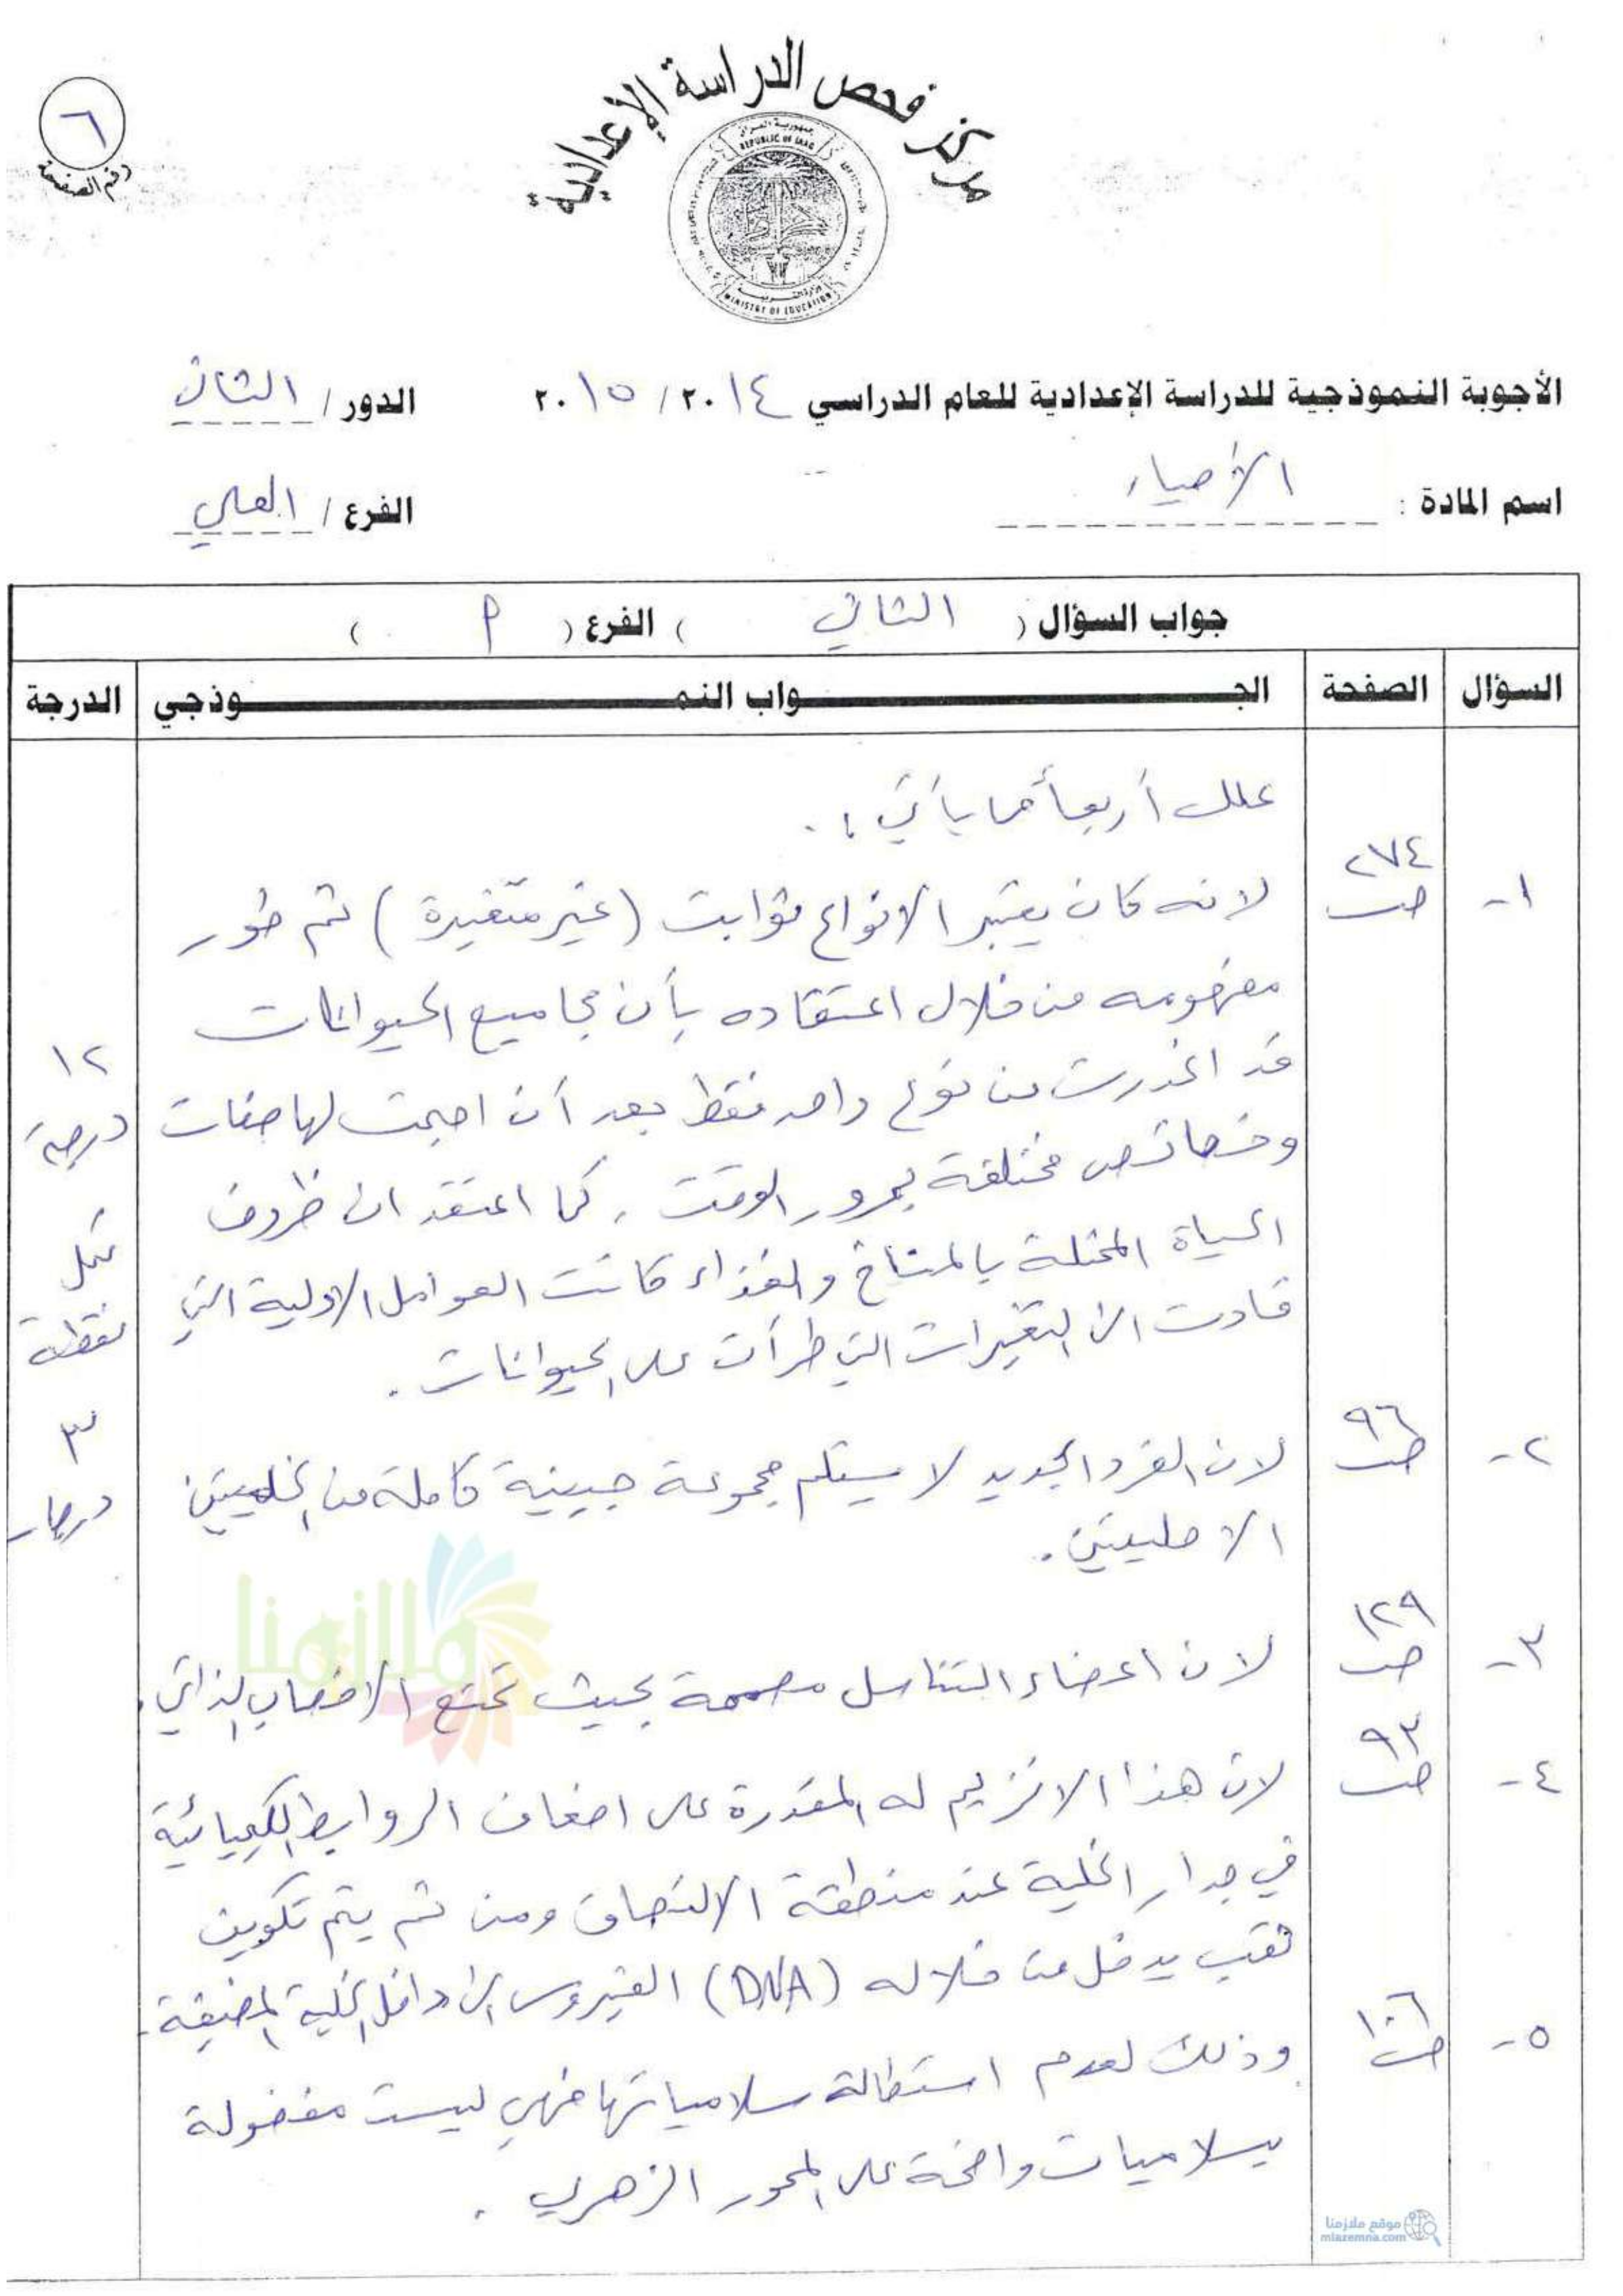 ٦
رقم الصفحة
مركز فحص الدراسة الإعدادية
جمهورية العراق
REPUBLIC OF IRAQ
وزارة التربية
MINISTRY OF EDUCATION
الأجوبة النموذجية للدراسة الإعدادية للعام الدراسي ٢٠١٤ / ٢٠١٥ الدور / الثاني
اسم المادة : الأحياء الفرع / العلمي
جواب السؤال ( الثاني ) الفرع ( م )
السؤال الصفحة الجواب النموذجي الدرجة
علل أربعاً مما يأتي :.
١- ص ٢٧٤ لانه كان يعتبر الانواع ثوابت (غير متغيرة) ثم طور
مفهومه من خلال اعتقاده بأن مجاميع الحيوانات
قد انحدرت من نوع واحد فقط بعد أن اصبحت لها صفات
وخصائص مختلفة بمرور الوقت . كما اعتقد ان ظروف
الحياة المختلة بالمناخ والغذاء كانت العوامل الاولية التي
قادت الى التغيرات التي طرأت على الحيوانات .
١٢
درجة
لكل
نقطة
٣
درجات
٢- ص ٩٦ لان الفرد الجديد لا يستلم مجموعة جينية كاملة من الخليتين
الاصليتين .
٣- ص ١٢٩ لان اعضاء التناسل مصممة بحيث تمنع الاخصاب الذاتي .
٤- ص ٩٣ لان هذا الانزيم له المقدرة على اضعاف الروابط الكيميائية
في جدار الخلية عند منطقة الالتصاق ومن ثم يتم تكوين
ثقب يدخل من خلاله (DNA) الفيروس الى داخل الخلية المضيفة .
٥- ص ١٠٦ وذلك لعدم استطالة سلامياتها فهي ليست مفصولة
بسلاميات واضحة على المحور الزهري .
ملازمنا
موقع ملازمنا
mlazemna.com